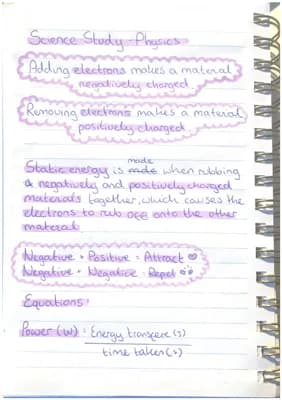 Science Study: Physics
Adding electrons makes a material
negatively charged.
Removing electrons makes a material
positively charged
made
Static energy is made when rubbing
a negatively and positively charged
materials together, which causes the
electrons to rub off onto the other
material.
Negative + Positive = Attract
Negative + Negative = Repel
Equations:
Power (W) = Energy transfere (J)
time taken (s)